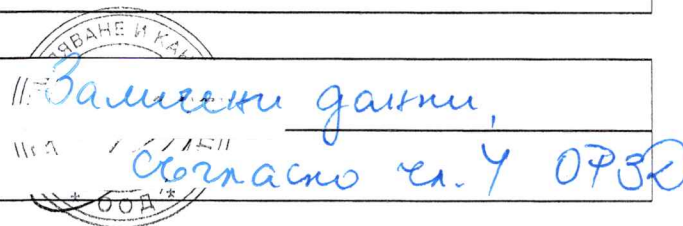 ЯВАНЕ И КА
Заличени данни,
съгласно чл. 4 ОРЗД
* ООД *